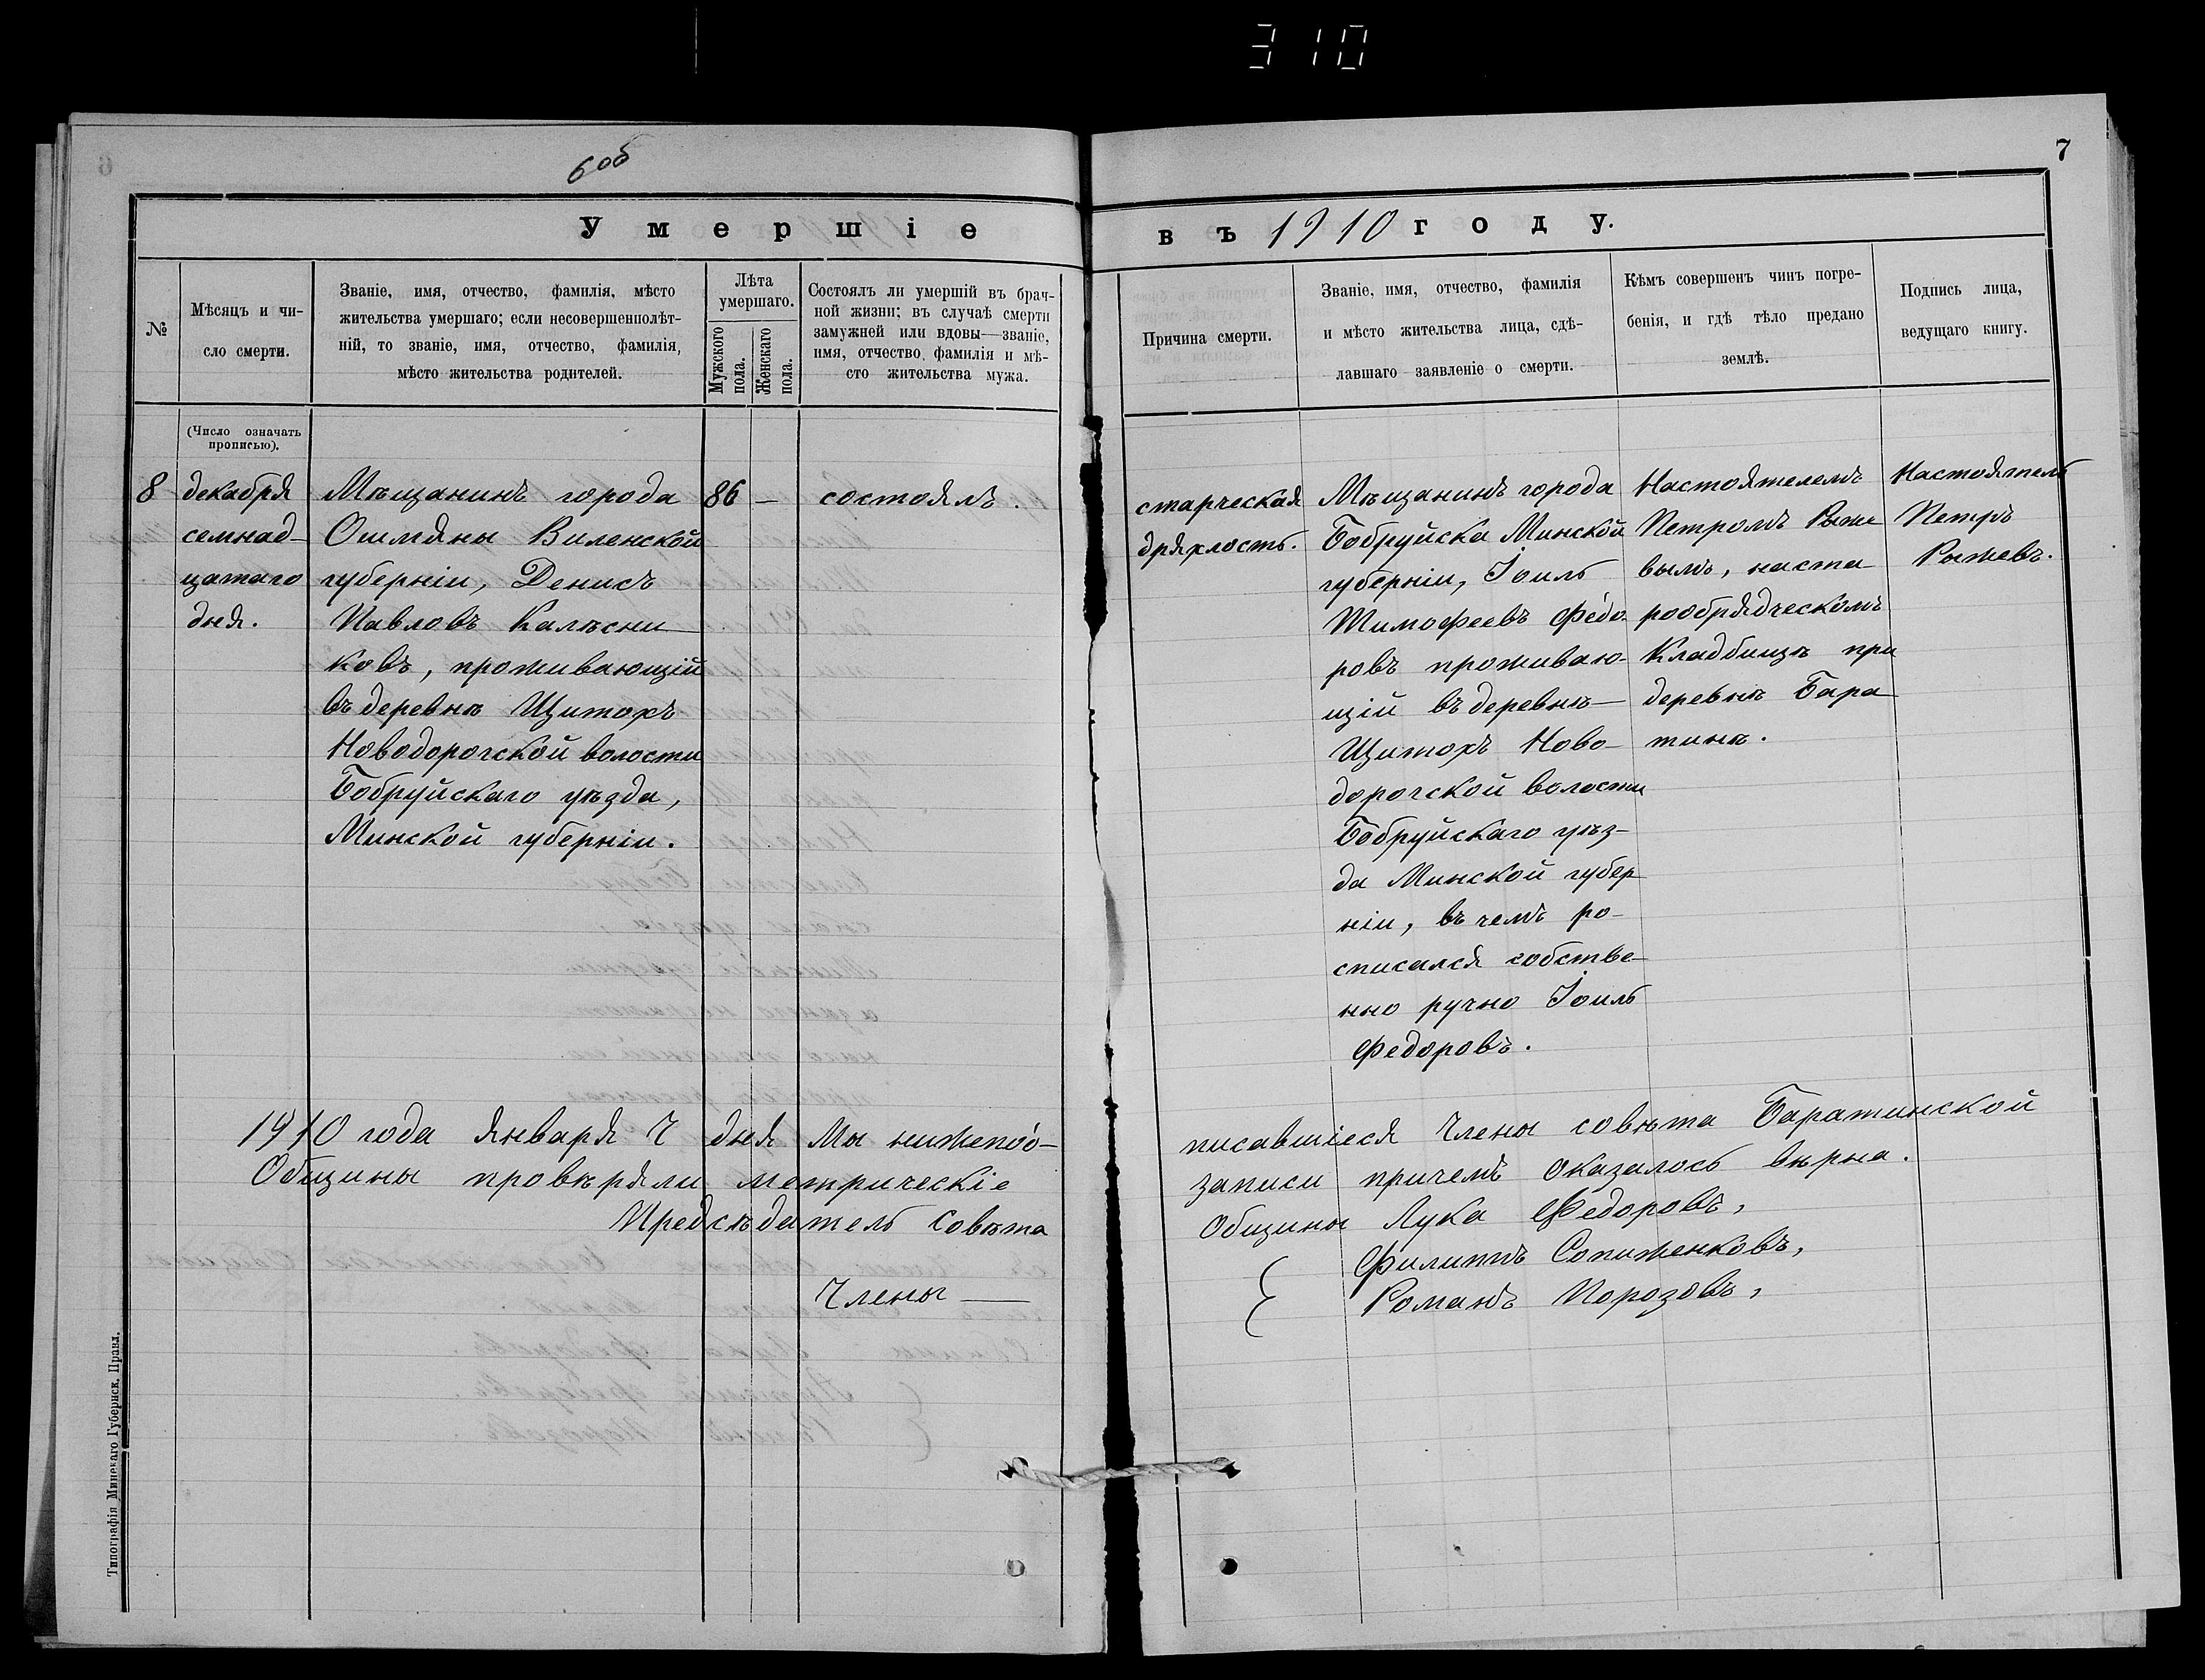 310
6об
7
Умершіе
въ 1910 году.
№
Мѣсяцъ и чи-
сло смерти.
Званіе, имя, отчество, фамилія, мѣсто
жительства умершаго; если несовершеннолѣт-
ній, то званіе, имя, отчество, фамилія,
мѣсто жительства родителей.
Лѣта
умершаго.
Мужского
пола.
Женскаго
пола.
Состоялъ ли умершій въ брач-
ной жизни; въ случаѣ смерти
замужней или вдовы—званіе,
имя, отчество, фамилія и мѣ-
сто жительства мужа.
Причина смерти.
Званіе, имя, отчество, фамилія
и мѣсто жительства лица, сдѣ-
лавшаго заявленіе о смерти.
Кѣмъ совершенъ чинъ погре-
бенія, и гдѣ тѣло предано
землѣ.
Подпись лица,
ведущаго книгу.
(Число означать
прописью).
8
декабря
семнад-
цатаго
дня.
Мѣщанинъ города
Ошмяны Виленской
губерніи, Денисъ
Павловъ Калѣсни-
ковъ, проживающій
въ деревнѣ Щитохъ
Новодорогской волости
Бобруйскаго уѣзда,
Минской губерніи.
86
—
состоялъ.
старческая
дряхлость.
Мѣщанинъ города
Бобруйска Минской
губерніи, Іоиль
Тимофеевъ Федо-
ровъ проживаю-
щій въ деревнѣ
Щитохъ Ново-
дорогской волости
Бобруйскаго уѣз-
да Минской губер
ніи, въ чемъ ро-
списался собстве-
нно ручно Іоиль
Федоровъ.
Настоятелемъ
Петромъ Рыже
вымъ, наста
рообрядческомъ
Кладбищѣ при
деревнѣ Бара
тинѣ.
Настоятель
Петръ
Рыжевъ.
1910 года января 7 дня Мы нижепо́д-
писавшіеся Члены совѣта Баратинской
Общины провѣряли метрическіе
записи причемъ оказалось вѣрна.
Предсѣдатель Совѣта
Общины Лука Федоровъ,
Члены —
Филиппъ Сопиженковъ,
Романъ Порозовъ,
Типографія Минскаго Губернск. Правл.